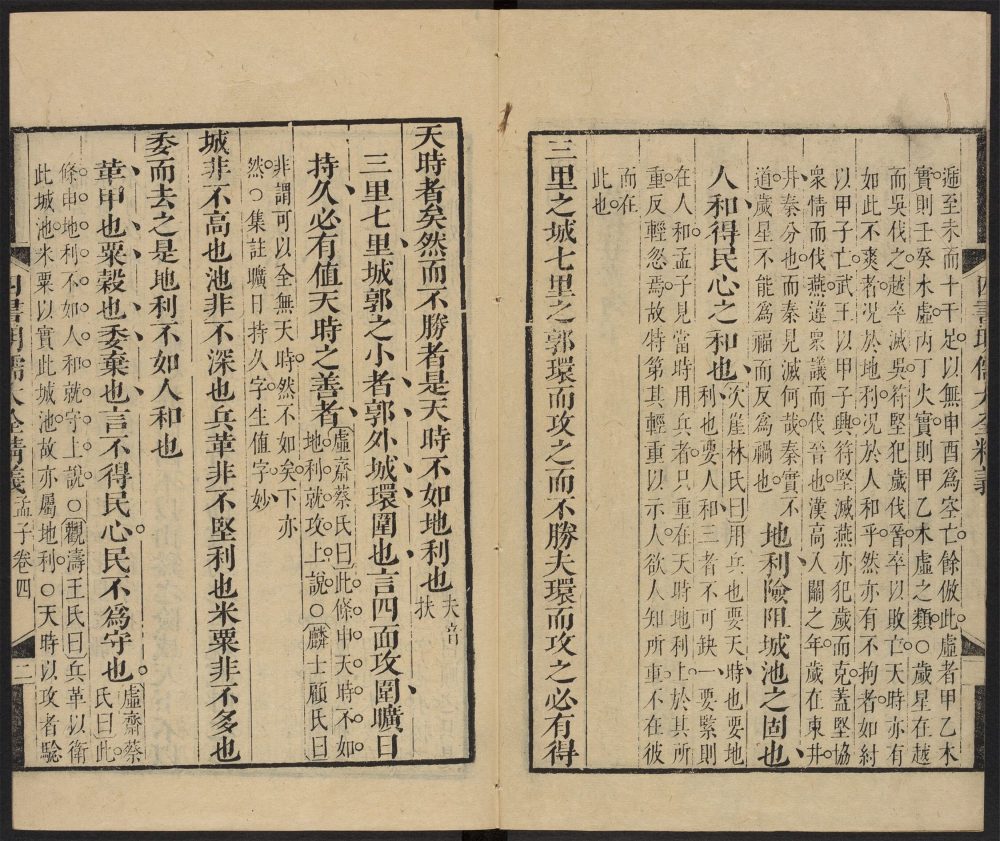 遁至未而十干足以無申酉為空亡餘倣此虛者甲乙木
實則壬癸水虛丙丁火實則甲乙木虛之類○歲星在越
而吳伐之越卒滅吳符堅犯歲伐晉卒以敗亡天時亦有
如此不爽者況於地利況於人和乎然亦有不拘者如紂
以甲子亡武王以甲子興符堅滅燕亦犯歲而克蓋堅協
衆情而伐燕違衆議而伐晉也漢高入關之年歲在東井
井秦分也而秦見滅何哉秦實不
道歲星不能為福而反為禍也
地利險阻城池之固也
人和得民心之和也
次崖林氏曰用兵也要天時也要地
利也要人和三者不可缺一要緊則
在人和孟子見當時用兵者只重在天時地利上於其所
重反輕忽焉故特第其輕重以示人欲人知所重不在彼
而在
此也
三里之城七里之郭環而攻之而不勝夫環而攻之必有得
天時者矣然而不勝者是天時不如地利也
夫音
扶
三里七里城郭之小者郭外城環圍也言四面攻圍曠日
持久必有值天時之善者
虛齋蔡氏曰此條申天時不如
地利就攻上說○麟士顧氏曰
非謂可以全無天時然不如矣下亦
然○集註曠日持久字生值字妙
城非不高也池非不深也兵革非不堅利也米粟非不多也
委而去之是地利不如人和也
革甲也粟穀也委棄也言不得民心民不為守也
虛齋蔡
氏曰此
條申地利不如人和就守上說○觀濤王氏曰兵革以衛
此城池米粟以實此城池故亦屬地利○天時以攻者驗
四書明儒大全精義
孟子卷四
二